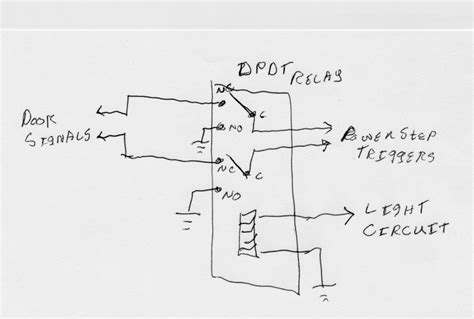 DPDT RELAY
NC
C
NO
DOOR
SIGNALS
POWER STEP
TRIGGERS
NC
C
NO
LIGHT
CIRCUIT